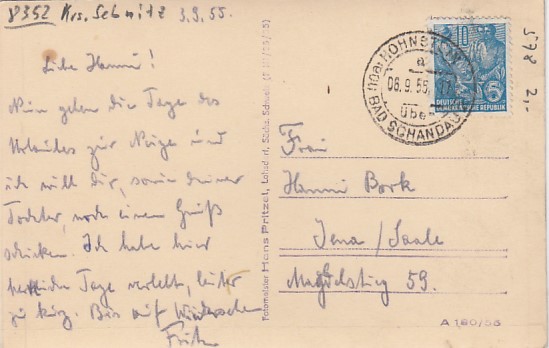 8352 Krs. Sebnitz 3.9.55.
Liebe Hanni!
Nun gehen die Tage des
Urlaubes zur Neige und
ich will Dir, sowie deiner
Tochter, noch einen Gruß
schicken. Ich habe hier
herrliche Tage verlebt, leider
zu kurz. Bis auf Wiedersehen
Fritz
Fotomeister Hans Pritzel, Lohsdorf, Sächs. Schweiz
HOHNSTEIN
a
06.9.55
über
BAD SCHANDAU
10
DEUTSCHE
DEMOKRATISCHE REPUBLIK
578 2,-
Frau
Hanni Bork
Jena/Saale
Magdelstieg 59.
A 160/55